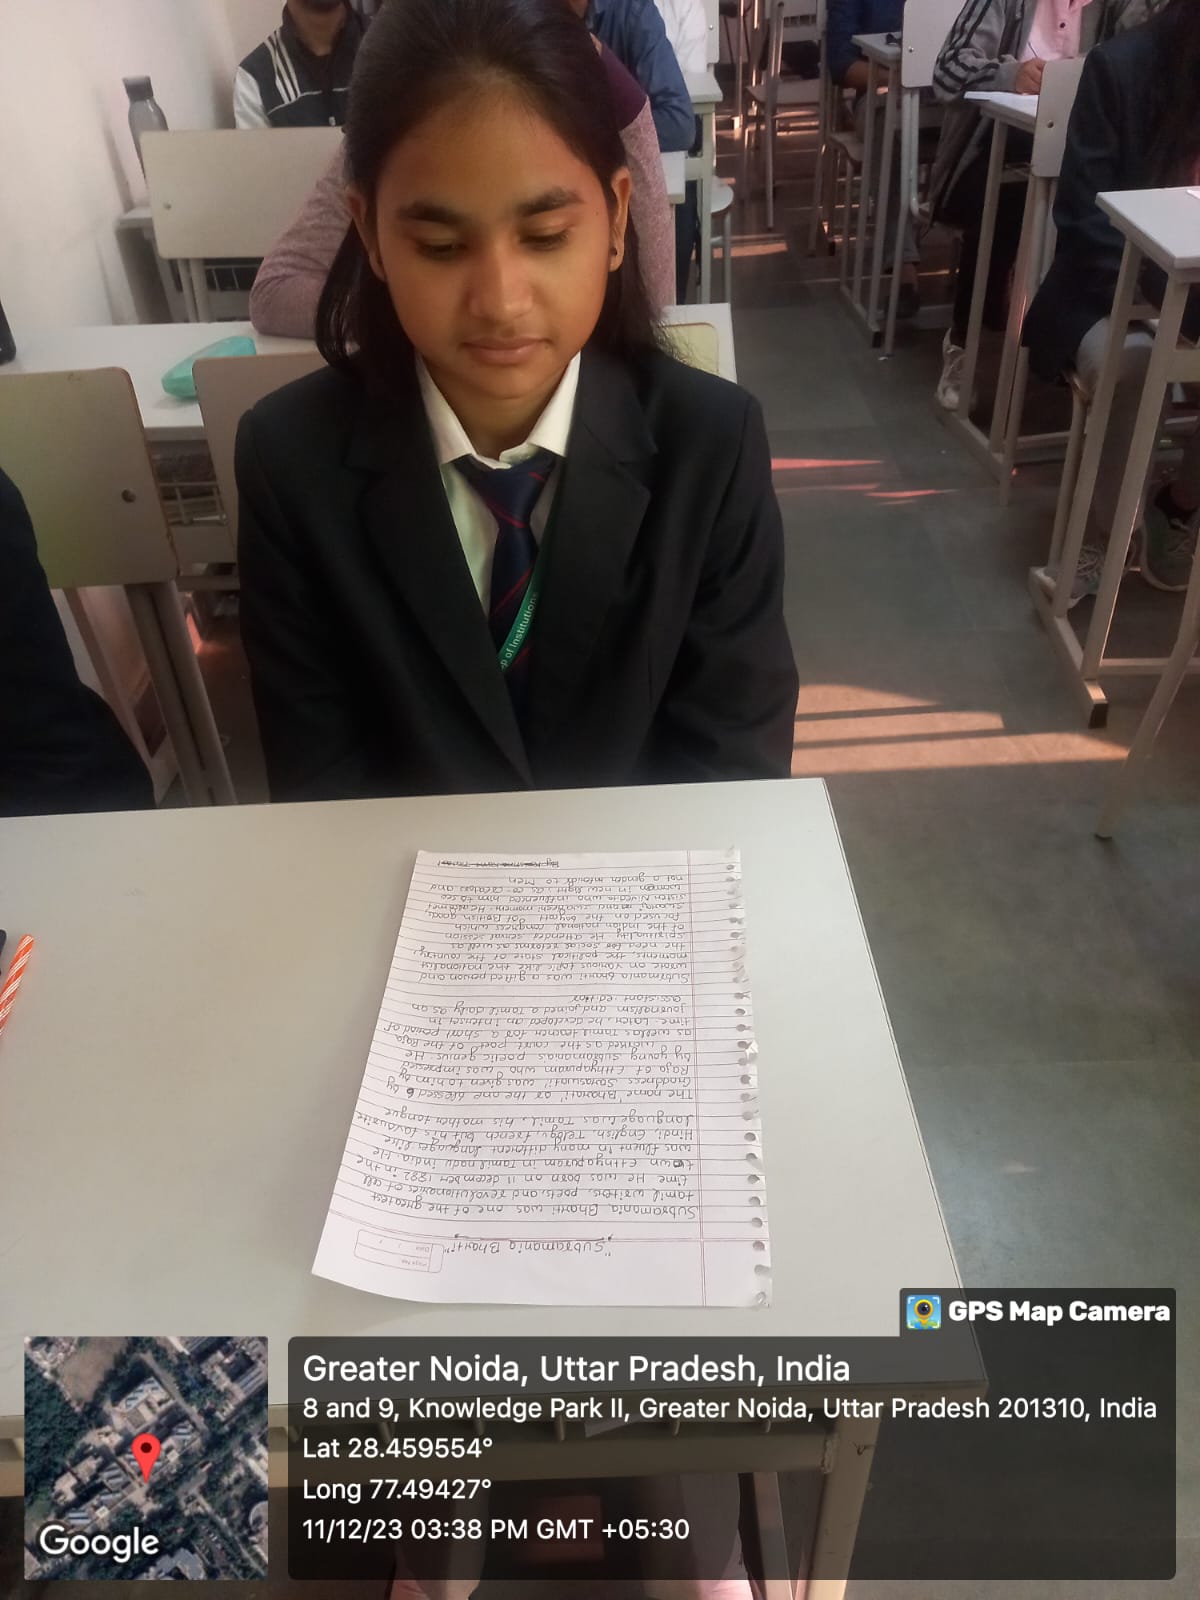 p of Institutions
"Subramania Bharti"
Page No.
Date
Subramania Bharti was one of the greatest
tamil writers, poets, and revolutionaries of all
time. He was born on 11 december 1882 in the
town Ettayapuram in Tamilnadu india. He
was fluent in many different languages like
Hindi, English, Telegu, french but his favourite
language was Tamil, his mother tongue
The name "Bharati" or the one blessed by
Goddness Saraswati" was given to him by
Raja of Ettyapuram who was impressed
by young subramanias poetic genius. He
worked as the court poet of the Raja
as wellas Tamil teacher for a short period of
time. Later, he developed an interest in
journalism and joined a Tamil daily as an
assistant editor
Subramania bharti was a gifted person and
wrote on various topic like the nationalist
moments, the political state of the country,
the need for social reforms as well as
spirituality. He attended serval session
of the Indian national congress which
focused on the boycott of British goods
swaraj and swadeshi moment. He
sister Nivedita who influenced him to see
woman in new light, as co-creators and
not a gender inferids to Men
By
GPS Map Camera
Greater Noida, Uttar Pradesh, India
8 and 9, Knowledge Park II, Greater Noida, Uttar Pradesh 201310, India
Lat 28.459554°
Long 77.49427°
11/12/23 03:38 PM GMT +05:30
Google